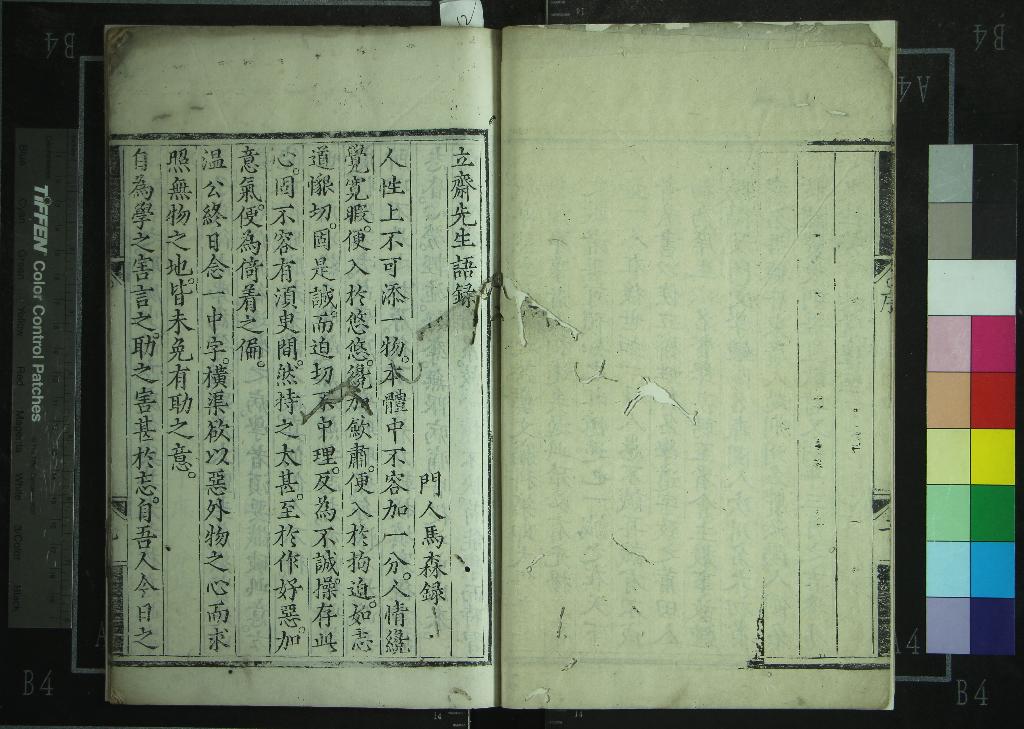 立齋先生語録
門人馬森録
人性上不可添一物。本體中不容加一分。人情纔
覺寛暇。便入於悠悠。纔加歛肅。便入於拘迫。如志
道懇切。固是誠。而迫切不中理。反為不誠。操存此
心。固不容有須臾間。然持之太甚。至於作好惡。加
意氣。便為倚着之偏。
温公終日念一中字。橫渠欲以惡外物之心而求
照無物之地。皆未免有助之意。
自為學之害言之。助之害甚於忘。自吾人今日之
序
TIFFEN Color Control Patches
Blue Cyan Green Yellow Red Magenta White 3/Color Black
B4
B4
A4
A4
B4
B4
12